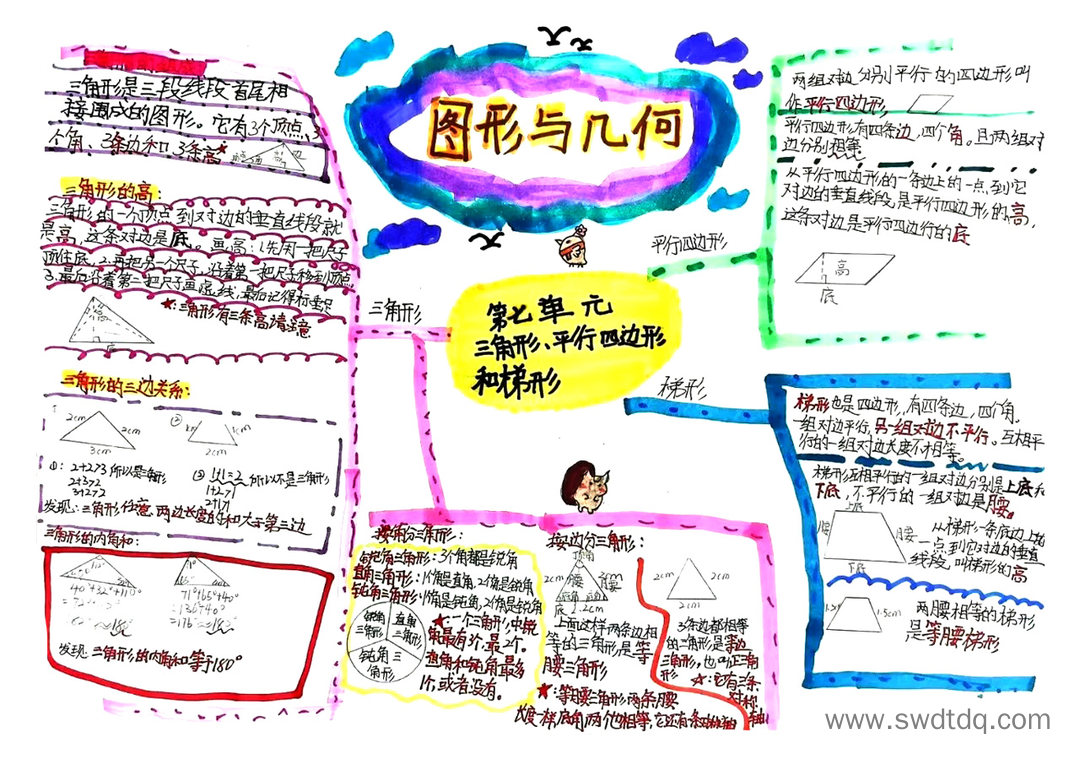 图形与几何
第七单元
三角形、平行四边形
和梯形
三角形
三角形是三段线段首尾相
接围成的图形。它有3个顶点、3
个角、3条边和3条高
边
三角形的高:
三角形的一个顶点到对边的垂直线段就
是高,这条对边是底。画高:1.先用一把尺子
顶住底,2.再把另一个尺子,沿着第一把尺子移到顶点
3.最后沿着第二把尺画虚线,最后记得标垂足
高
底
★:三角形有三条高请注意
三角形的三边关系:
2cm
2cm
3cm
②
1cm
2cm
①:2+2>3所以是三角形
2+3>2
3+2>2
②1+1=2所以不是三角形
1+2>1
2+1>1
发现:三角形任意两边长度的和大于第三边
三角形的内角和:
发现:三角形的内角和等于180°
按角分三角形:
锐角三角形:3个角都是锐角
直角三角形:1个角是直角,2个角是锐角
钝角三角形:1个角是钝角,2个角是锐角
锐角
三角形
直角
三角形
钝角三
角形
★:一个三角形中锐
角最有3个,最少2个。
直角和钝角最多
1个,或者没有。
按边分三角形:
顶角
腰
腰
底角
底角
底
1.2cm
上面这样两条边相
等的三角形是等
腰三角形
★:等腰三角形两条腰
长度一样底角两个相等,它还有1条对称轴
2cm
2cm
2cm
3条边都相等
的三角形是等边
三角形。也叫正三角
形
★:它有三条
对称
轴
平行四边形
两组对边分别平行的四边形叫
作平行四边形,
平行四边形有四条边,四个角。且两组对
边分别相等
从平行四边形的一条边上的一点,到它
对边的垂直线段,是平行四边形的高,
这条对边是平行四边行的底
高
底
梯形
梯形也是四边形,有四条边,四个角。
一组对边平行,另一组对边不平行。互相平
行的一组对边长度不相等。
梯形互相平行的一组对边分别是上底和
下底,不平行的一组对边是腰。
上底
腰
腰
下底
从梯形一条底边上的
一点到它对边的垂直
线段,叫梯形的高
1.5cm
两腰相等的梯形
是等腰梯形
www.swdtdq.com